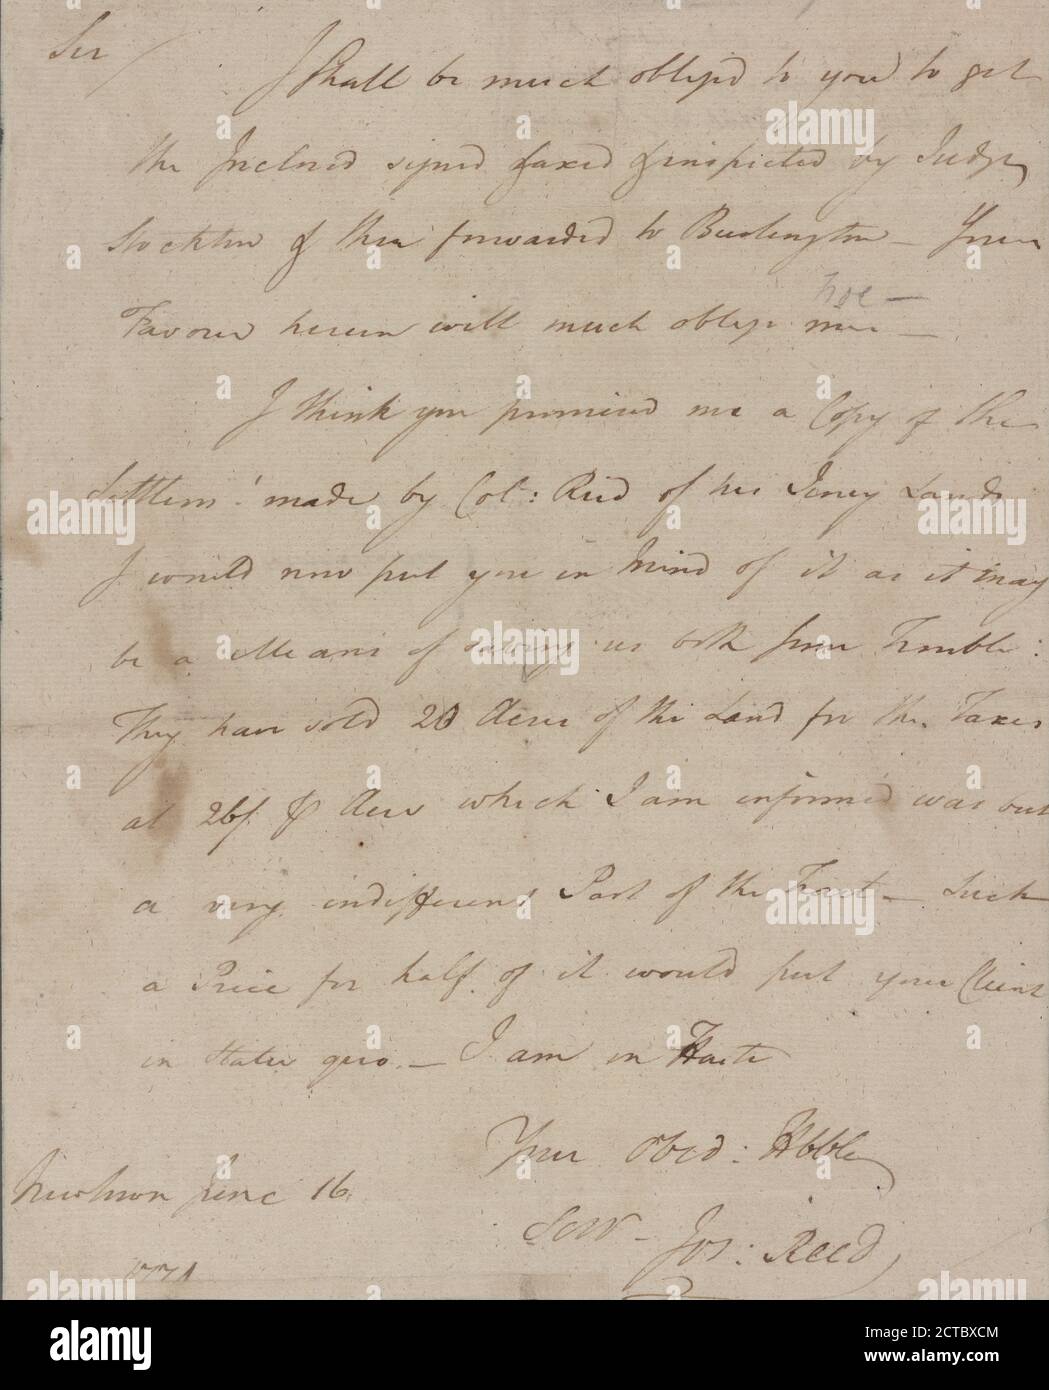 Sir /
I Shall be much oblig'd to you to get
the Inclosed signed taxed & inspected by Judge
Stockton & then forwarded to Burlington – Your
Favour herein will much oblige me –
I think you promised me a Copy of the
Settlem.t made by Col.: Reid of his Jersey Lands
I would now put you in Mind of it as it may
be a Means of saving us both some Trouble:
They have sold 20 Acres of the Land for the Taxes
at 26/ ⅌ Acre which I am informed was but
a very indifferent Part of the Tract – Such
a Price for half of it would put your Client
in Statu quo. – I am in Haste
Your Obed: Hbble
Serv – Jos: Reed
June 16
a alamy
alamy
Image ID: 2CTBXCM
www.alamy.com